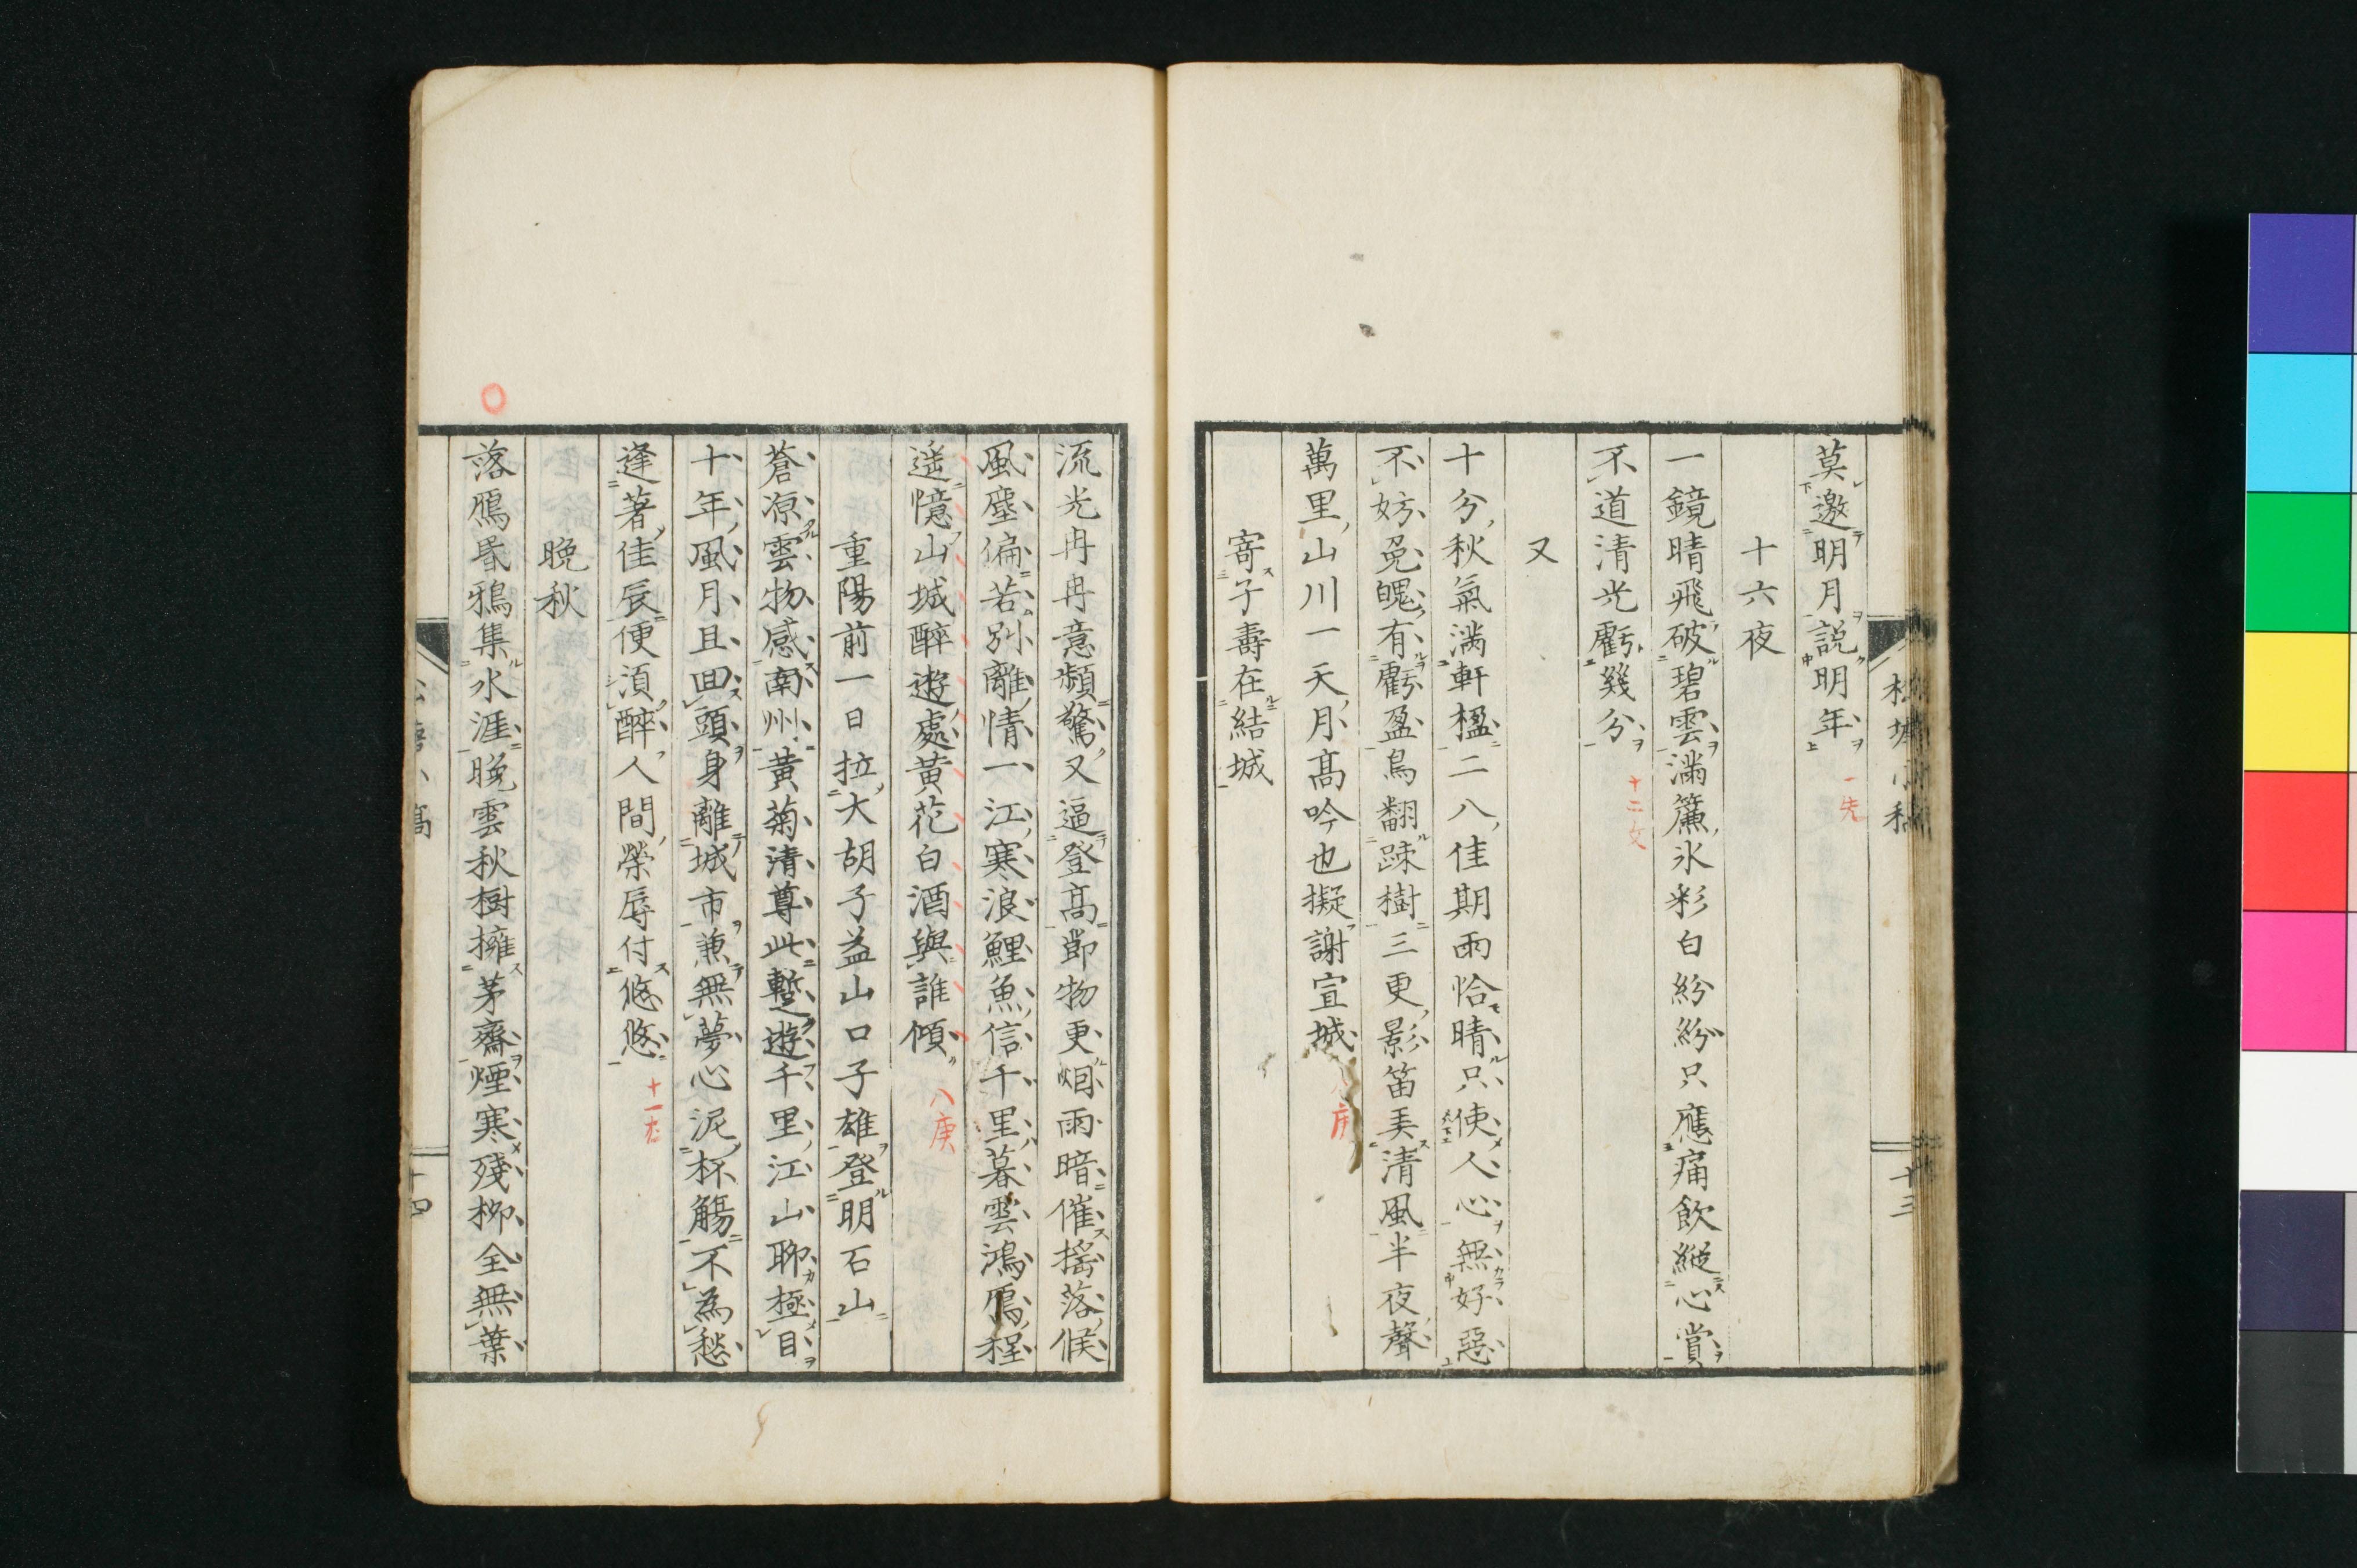 莫邀明月説明年
一先
十六夜
一鏡晴飛破碧雲滿簾氷彩白紛紛只應痛飲縱心賞
不道清光虧幾分
十二文
又
十分秋氣満軒楹二八佳期雨恰晴只使人心無好惡
不妨兔魄有虧盈烏翻踈樹三更影笛美清風半夜聲
萬里山川一天月高吟也擬謝宣城
八庚
寄子壽在結城
十三
流光冉冉意頻驚又逼登高節物更烟雨暗催揺落候
風塵偏若別離情一江寒浪鯉魚信千里暮雲鴻鴈程
遥憶山城醉遊處黄花白酒與誰傾
八庚
重陽前一日拉大胡子益山口子雄登明石山
蒼凉雲物感南州黄菊清尊此暫遊千里江山聊極目
十年風月且回頭身離城市兼無夢心泥杯觴不為愁
逢著佳辰便須醉人間榮辱付悠悠
十一尤
晩秋
落鴈昏鴉集水涯晩雲秋樹擁茅齋煙寒殘柳全無葉
十四